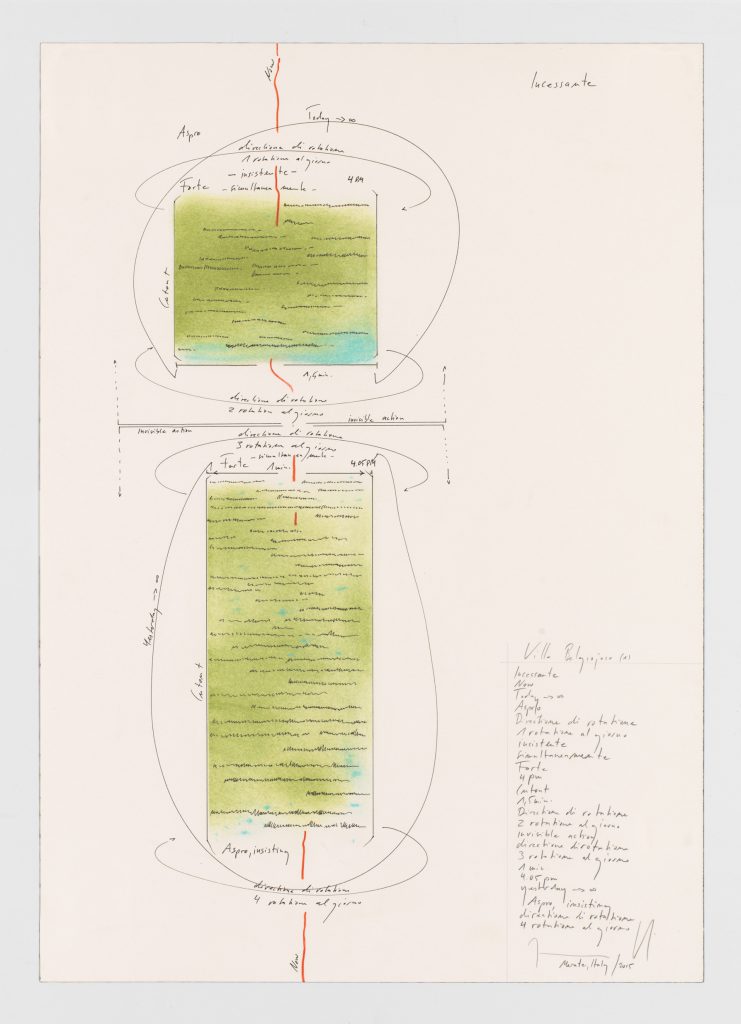 Incessante
Now
Today → ∞
Aspro
directione di rotatione
1 rotatione al giorno
- insistente -
Forte - simultanea mente -
4 PM
Cutout
1,5 min.
directione di rotatione
2 rotation al giorno
invisible action
invisible action
directione di rotatione
3 rotationem al giorno
- simultaneamente -
Forte
1 min.
4.05 PM
Yesterday → ∞
Cutout
Aspro, insisting
directione di rotatione
4 rotatione al giorno
Now
Villa Belgiojoso (2)
Incessante
Now
Today → ∞
Aspro
Directione di rotatione
1 rotatione al giorno
insistente
simultaneamente
Forte
4 pm
Cutout
1,5 min.
Directione di rotatione
2 rotatione al giorno
invisible action
directione di rotatione
3 rotatione al giorno
1 min
4.05 pm
yesterday → ∞
Aspro, insisting
directione di rotatione
4 rotatione al giorno
Merate, Italy / 2015